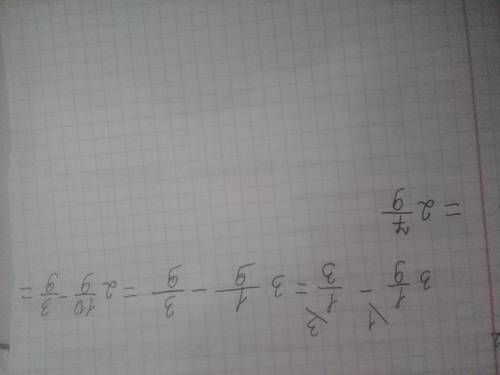 3 1/9 \1 - 1/3 \3 = 3 1/9 - 3/9 = 2 10/9 - 3/9 =
= 2 7/9